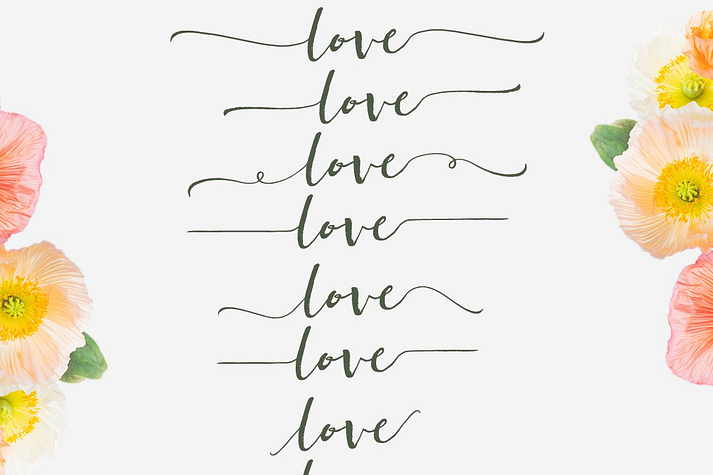 love
love
love
love
love
love
love